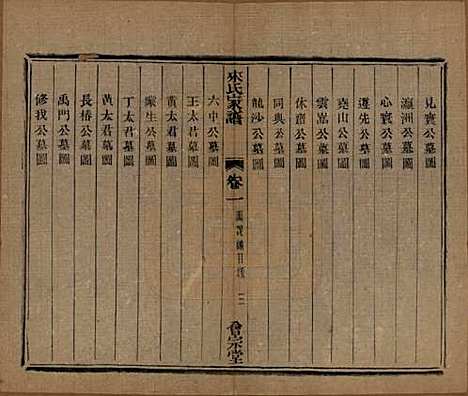 見寰公墓圖
瀛洲公墓圖
心寰公墓圖
遵先公墓圖
堯山公墓圖
雲嵩公墓圖
休齋公墓圖
同興公墓圖
龍沙公墓圖
來氏家譜
卷一
三
會宗堂
六中公墓圖
王太君墓圖
黃太君墓圖
聚生公墓圖
丁太君墓圖
黄太君墓圖
長椿公墓圖
禹門公墓圖
修我公墓圖